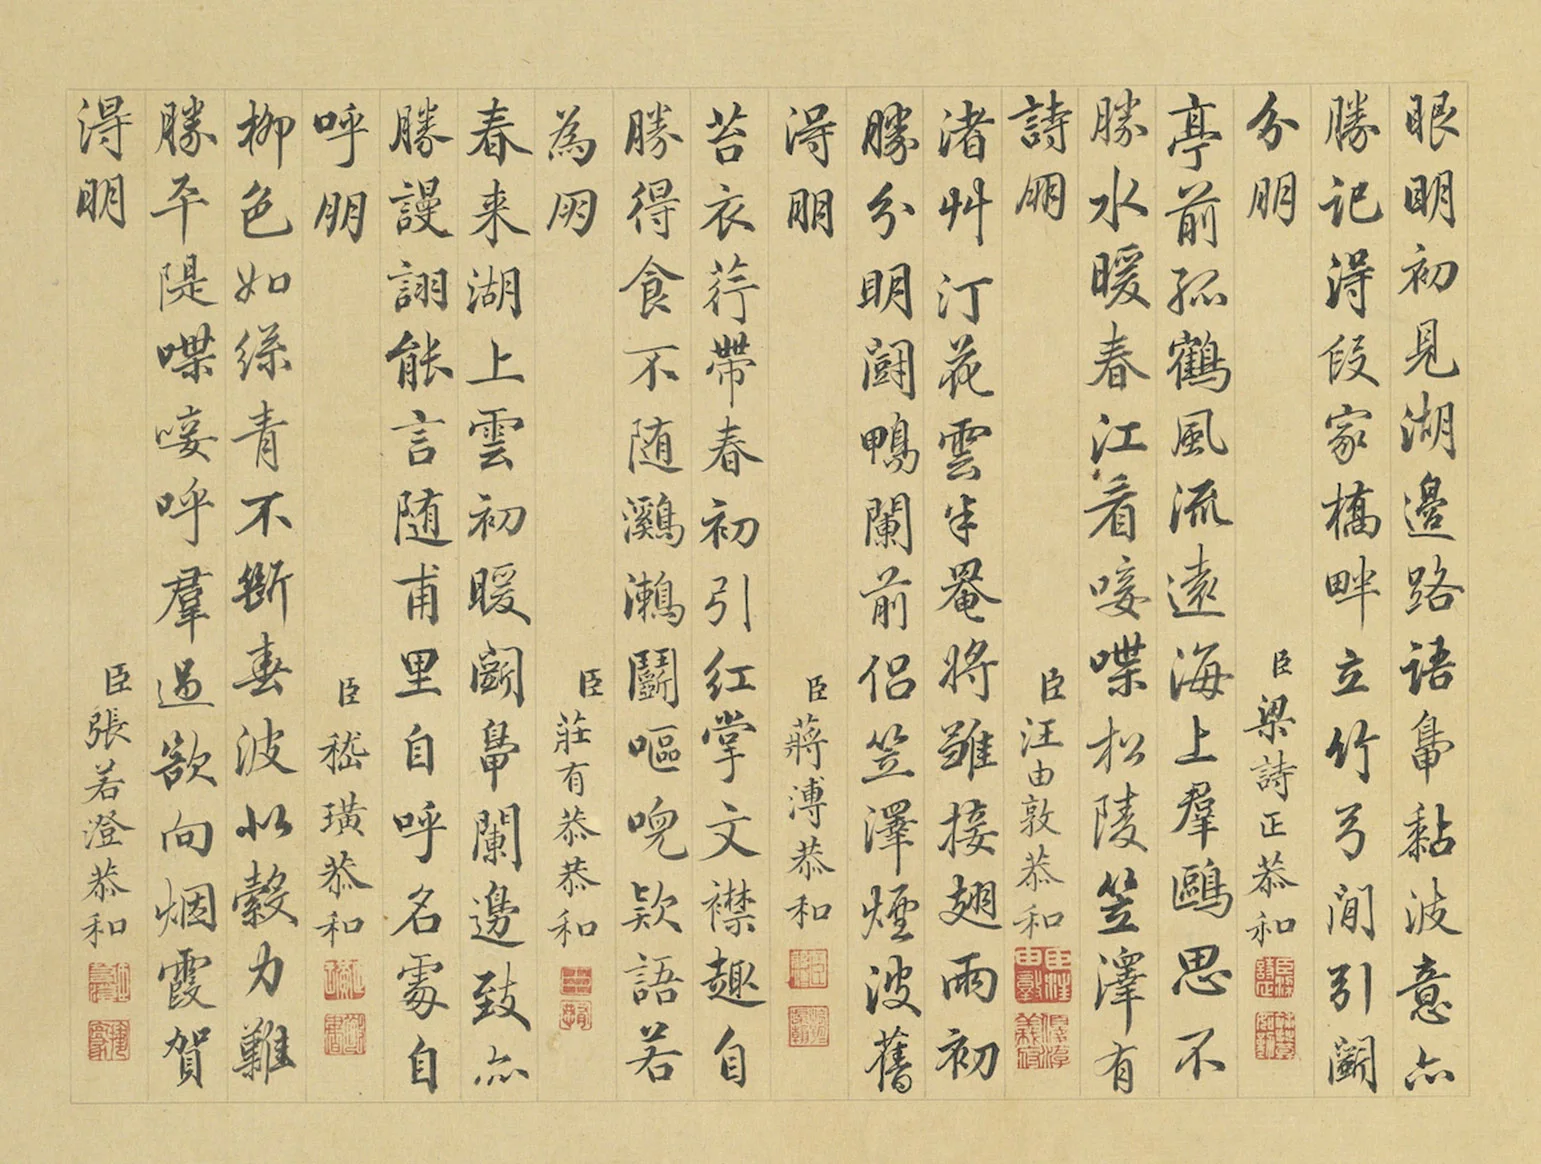 眼明初見湖邊路語鳧黏波意亦
勝記得段家橋畔立竹弓閒引闘
分朋
臣梁詩正恭和
亭前孤鶴風流遠海上羣鷗思不
勝水暖春江看唼喋松陵笠澤有
詩朋
臣汪由敦恭和
渚艸汀花雲半罨將雛接翅雨初
勝分明闘鴨闌前侶笠澤煙波舊
得朋
臣蔣溥恭和
苔衣荇帶春初引紅掌文襟趣自
勝得食不随鸂鶒鬭嘔唲欵語若
為朋
臣莊有恭恭和
春来湖上雲初暖闘鳧闌邊致亦
勝謾詡能言随甫里自呼名處自
呼朋
臣嵇璜恭和
柳色如絲青不斷春波似縠力難
勝平隄喋唼呼羣過欲向烟霞賀
得朋
臣張若澄恭和